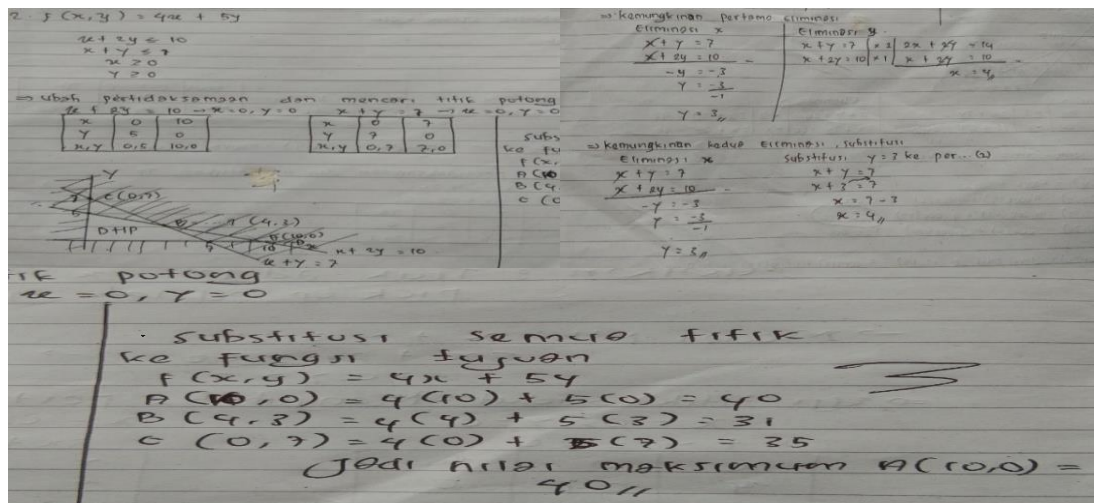 2. f(x,y) = 4x + 5y
x + 2y ≤ 10
x + y ≤ 7
x ≥ 0
y ≥ 0
⇒ ubah pertidaksamaan dan mencari titik potong
x + 2y = 10 → x = 0, y = 0
x 0 10
y 5 0
x,y 0,5 10,0
x + y = 7 → x = 0, y = 0
x 0 7
y 7 0
x,y 0,7 7,0
subs
ke fu
f(x,
A(10
B(4,
C (0
Y
C(0,7)
(4,3)
(10,0)
DHP
x + 2y = 10
x + y = 7
⇒ kemungkinan pertama eliminasi
Eliminasi x
x + y = 7
x + 2y = 10 -
-y = -3
y = -3/-1
y = 3,,
Eliminasi y
x + y = 7 | x 2 | 2x + 2y = 14
x + 2y = 10 | x 1 | x + 2y = 10 -
x = 4,,
⇒ kemungkinan kedua Eliminasi, substitusi
Eliminasi x
x + y = 7
x + 2y = 10 -
-y = -3
y = -3/-1
y = 3,,
substitusi y = 3 ke per...(2)
x + y = 7
x + 3 = 7
x = 7 - 3
x = 4,,
TIK potong
x = 0, y = 0
substitusi semua titik
ke fungsi tujuan
f(x,y) = 4x + 5y
A (10,0) = 4(10) + 5(0) = 40
B (4,3) = 4(4) + 5(3) = 31
C (0,7) = 4(0) + 5(7) = 35
Jadi nilai maksimum A(10,0) =
40,,